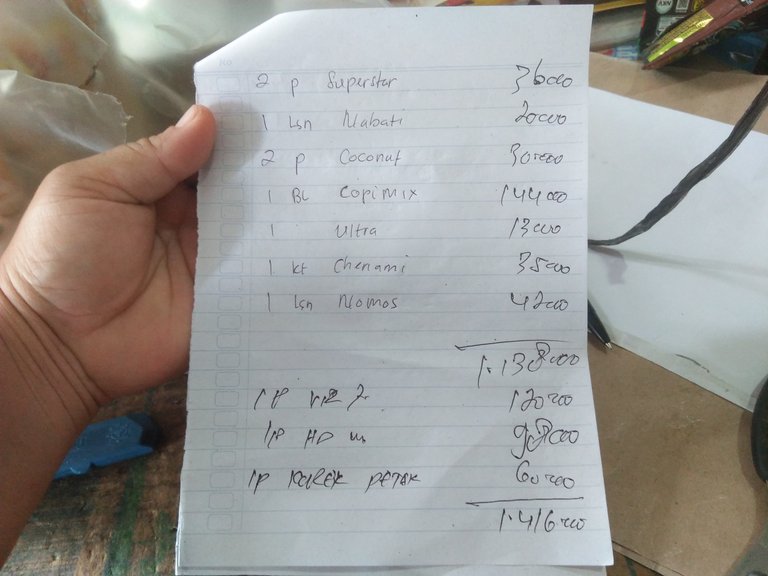 NO
2 p Superstar 36000
1 Lsn Nabati 20000
2 p Coconut 30000
1 BL Copimix 144000
1 Ultra 13000
1 kt Chenami 35000
1 Lsn Nomos 42000
1.138000
1P 120000
1P HD 98000
1P KOREK PETAK 60000
1.416000